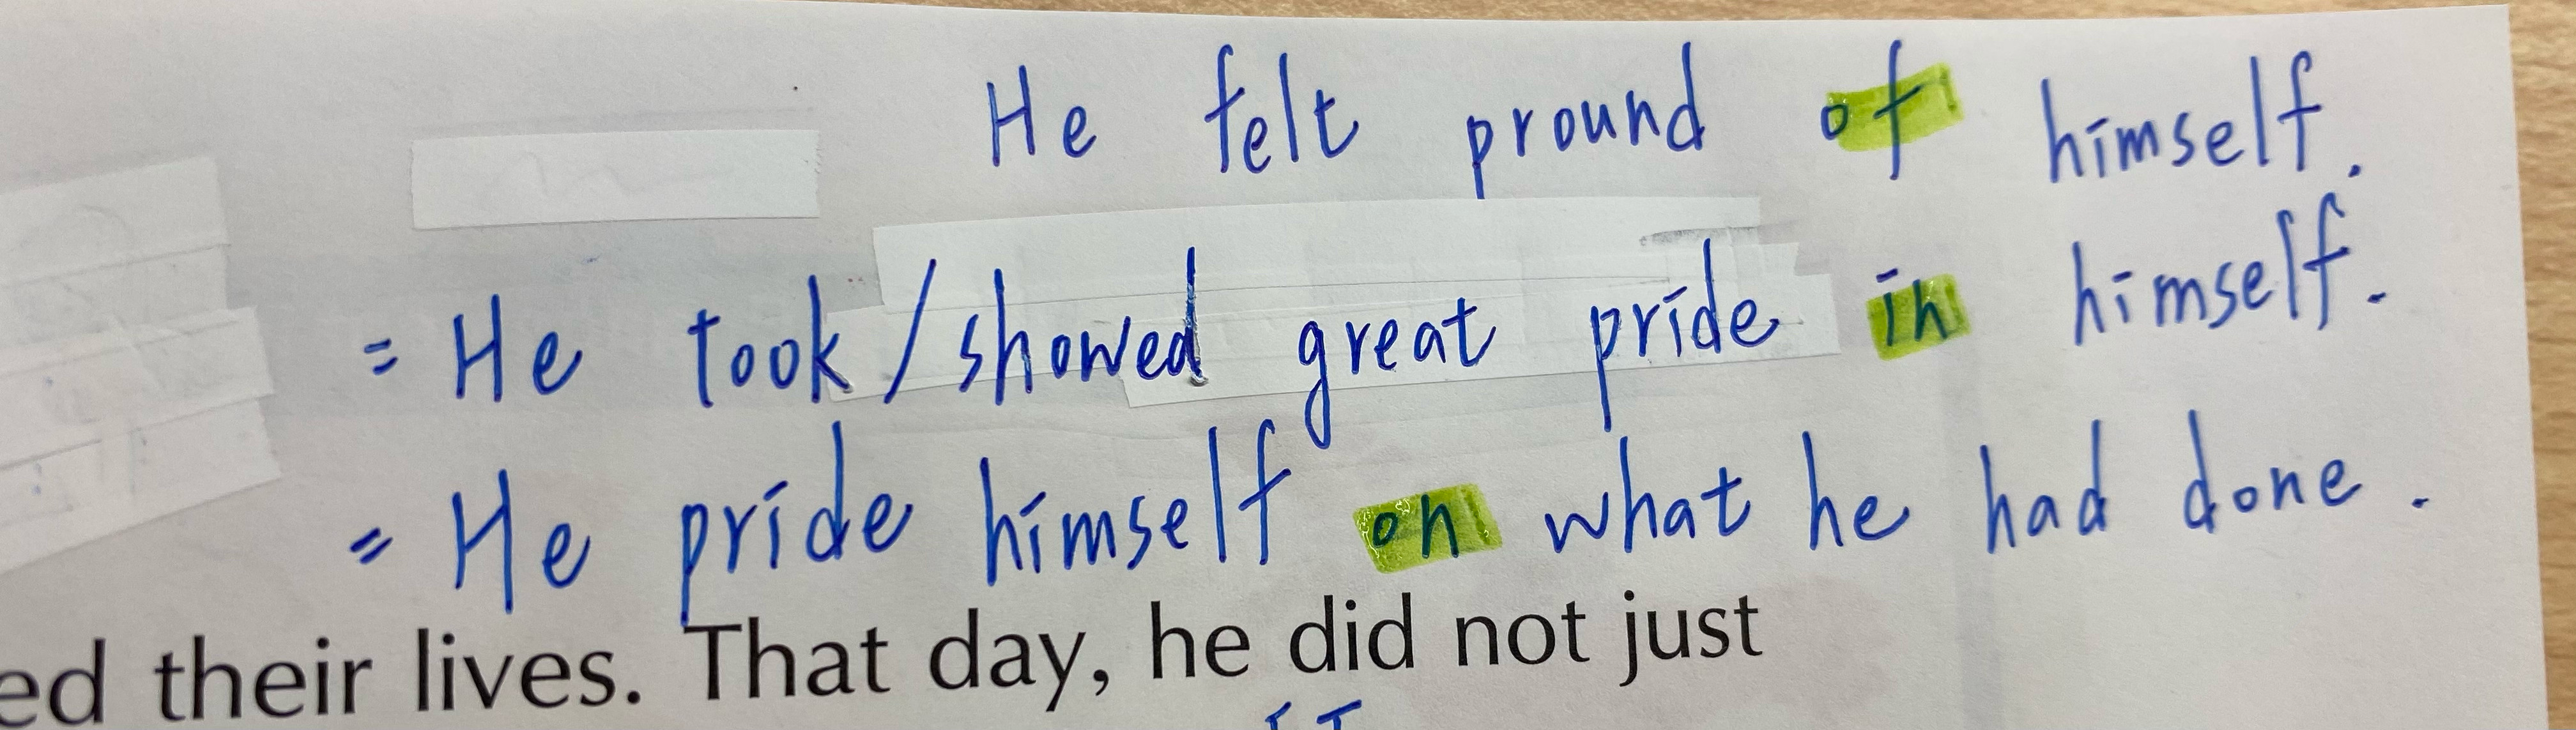 He felt pround of himself.
= He took/showed great pride in himself.
= He pride himself on what he had done.
ed their lives. That day, he did not just